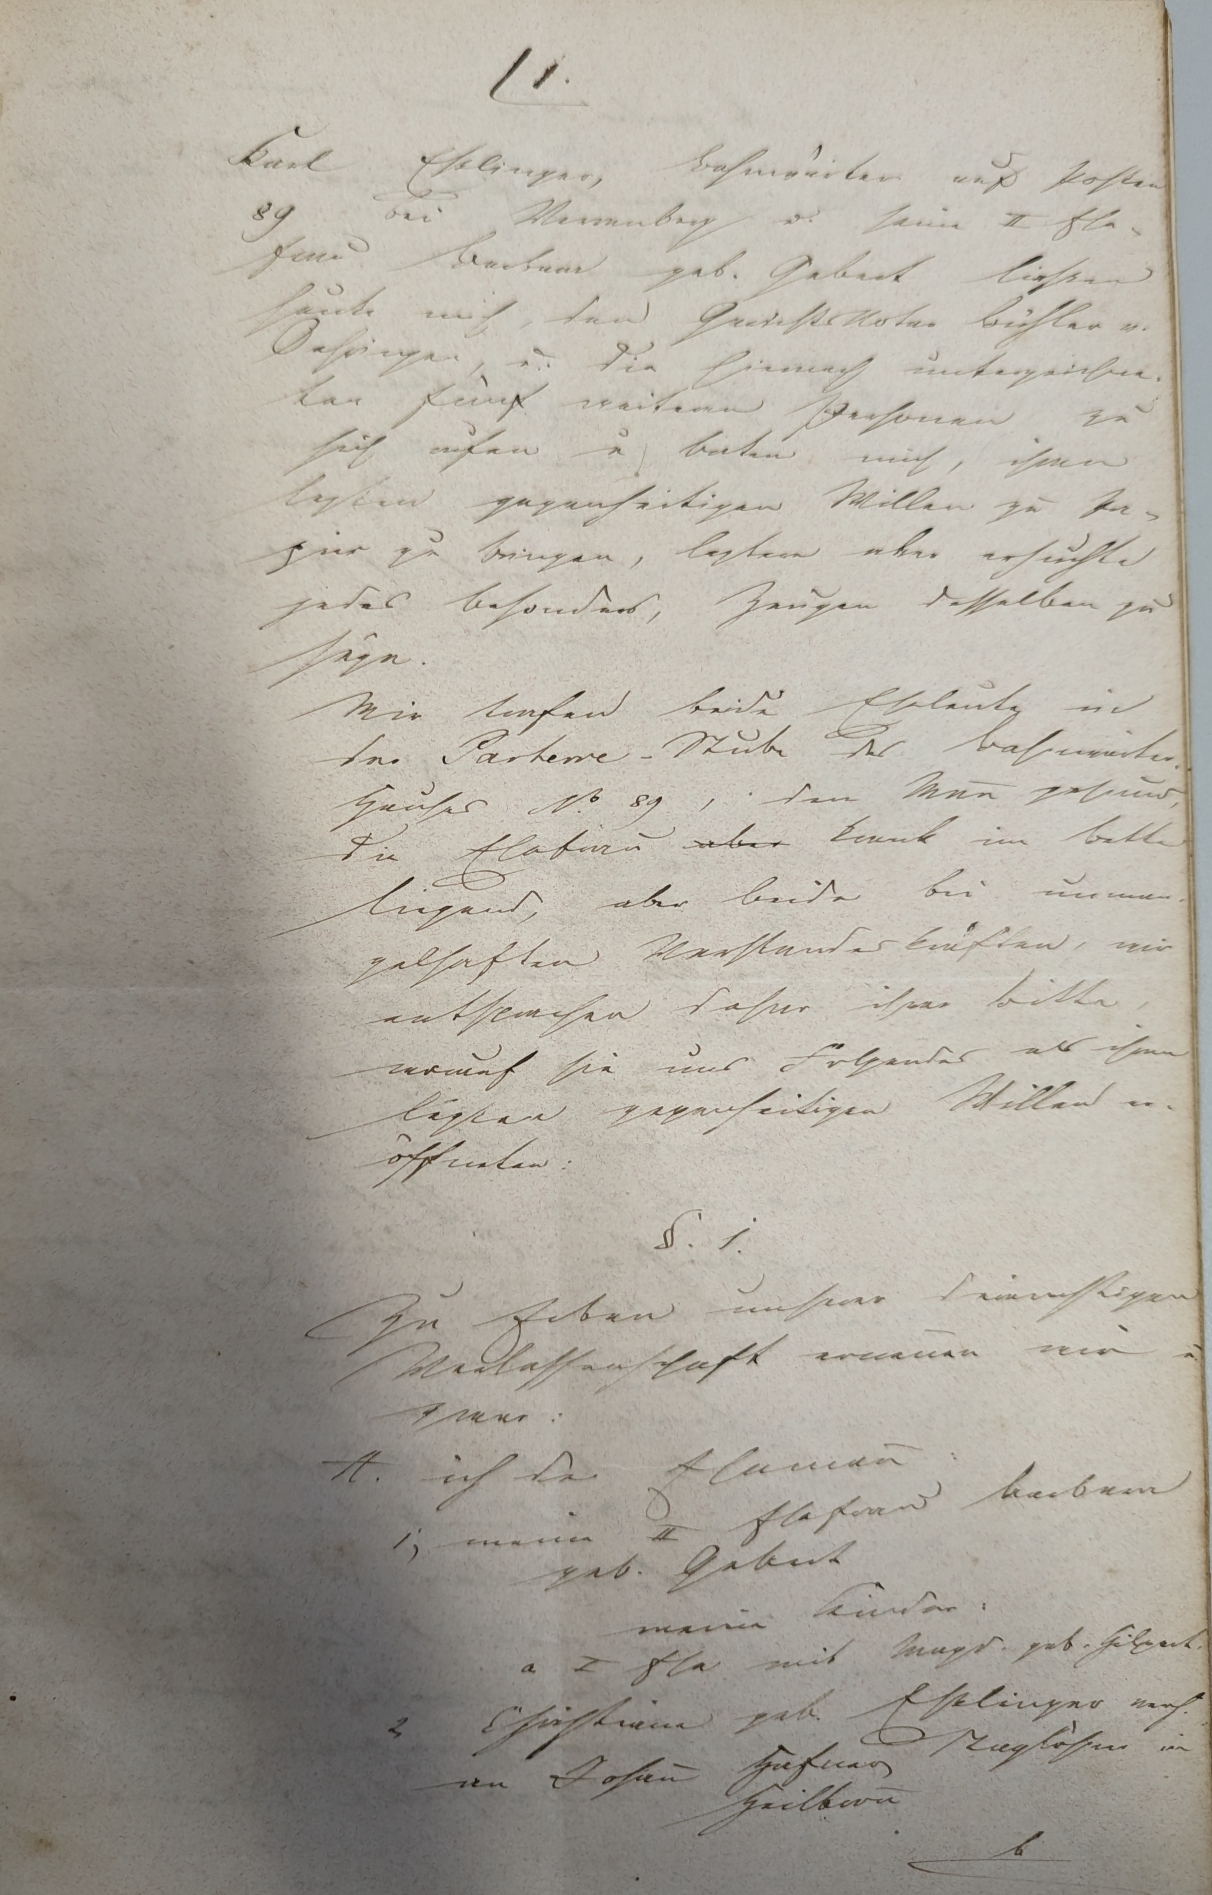 1.
Karl Eßlinger, Bahnwärter auf Posten
89 bei Verrenberg u. seine II Ehe-
frau Barbara geb. Gebert ließen
heute mich, den Gerichts Notar Bühler v.
Oehringen, u. die hienach unterzeichne-
ten fünf weiteren Personen zu
sich rufen u. baten mich, ihren
lezten gegenseitigen Willen zu Pa-
pier zu bringen, leztere aber ersuchte
jedes besonders, Zeugen desselben zu
seyn.
Wir trafen beide Eheleute in
der Parterre-Stube des Bahnwärter-
Hauses No. 89, den Mann gesund,
die Ehefrau aber krank im Bette
liegend, aber beide bei unman-
gelhaften Verstandeskräften, wir
entsprachen daher ihrer Bitte,
worauf sie uns Folgendes als ihren
lezten gegenseitigen Willen er-
öffneten:
§. 1.
Zu Erben unserer dereinstigen
Verlassenschaft ernennen wir u.
zwar:
A. ich der Ehemann:
1, meine II Ehefrau Barbara
geb. Gebert
meine Kinder:
a I Ehe mit Magd. geb. Hilpert.
2, Christiana geb. Eßlinger verh.
an Johann Hafner in
Heilbronn
b